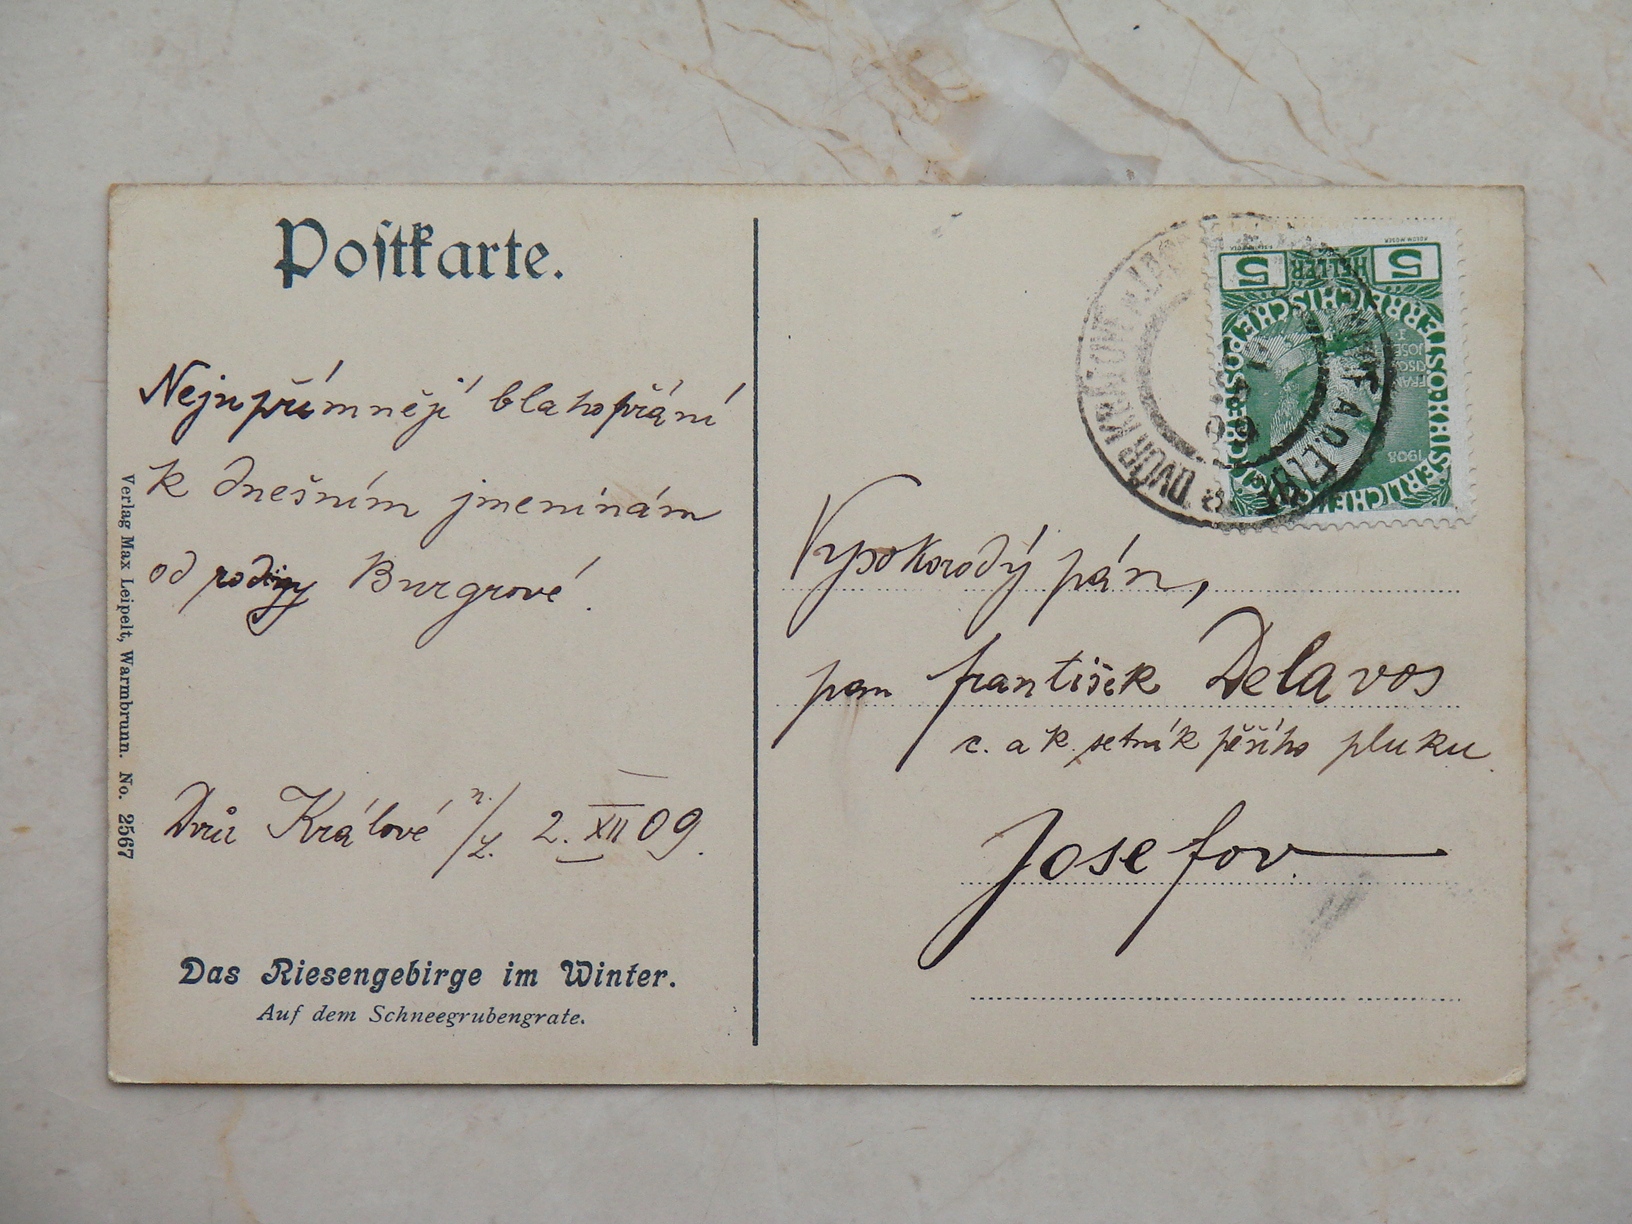 Postkarte.
Nejupřímnějí blahopřání
k dnešním jmeninám
od rodiny Burgrové.
Dvůr Králové n./L. 2. XII 09.
Das Riesengebirge im Winter.
Auf dem Schneegrubengrate.
Verlag Max Leipelt, Warmbrunn. No. 2567
5 HELLER 5
KOLOM.MOSER
KAISERLICHE KÖNIGL
ÖSTERREICHISCHE POST
FRANZ JOSEF I.
1908
DVŮR KRÁLOVÉ
A.D. ELBE
Vysokorodý pán,
pan františek Delavos
c. a k. setník pěšího pluku.
Josefov.